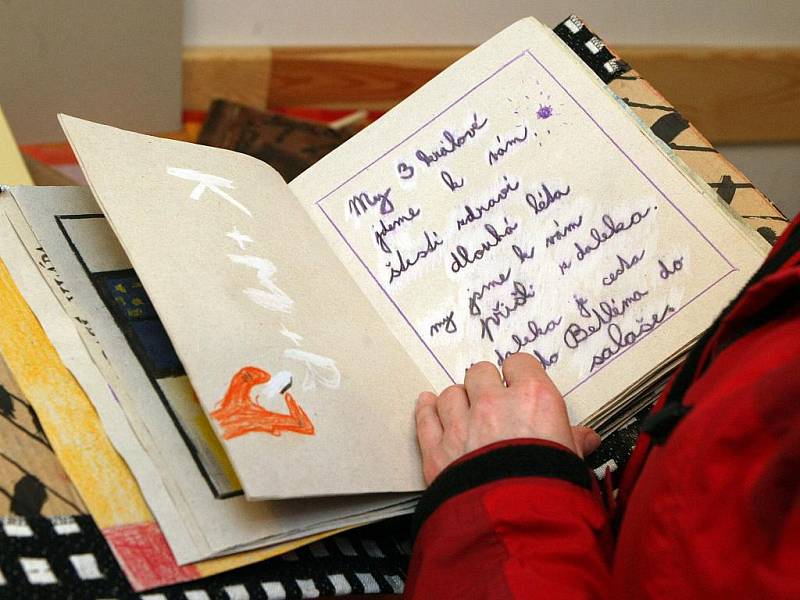 K + M + B
My 3 králové
jdeme k vám.
štěstí zdraví
dlouhá léta
my jsme k vám
přišli z daleka.
daleka je cesta
do Betléma do
salaše.